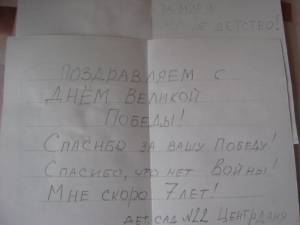 НЕ ДЕТСТВО!
ПОЗДРАВЛЯЕМ С
ДНЁМ ВЕЛИКОЙ
ПОБЕДЫ!
СПАСИБО ЗА ВАШУ ПОБЕДУ!
СПАСИБО, ЧТО НЕТ ВОЙНЫ!
МНЕ СКОРО 7 ЛЕТ!
ДЕТ. САД №22